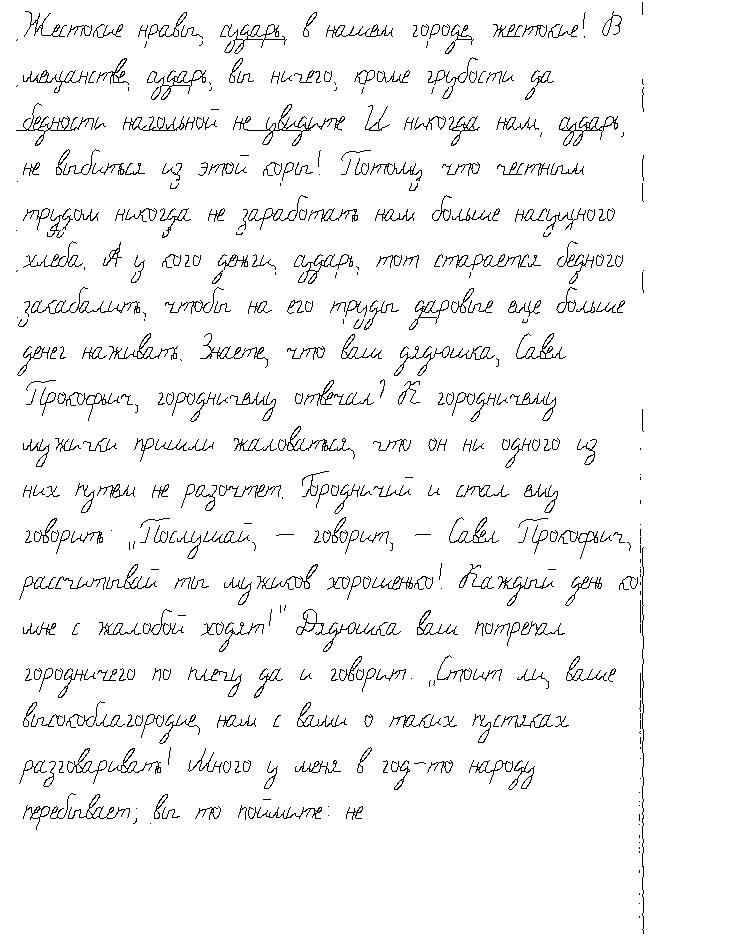 Жестокие нравы, сударь, в нашем городе, жестокие! В
мещанстве, сударь, вы ничего, кроме грубости да
бедности нагольной не увидите И никогда нам, сударь,
не выбиться из этой коры! Потому что честным
трудом никогда не заработать нам больше насущного
хлеба. А у кого деньги, сударь, тот старается бедного
закабалить, чтобы на его труды даровые еще больше
денег наживать. Знаете, что ваш дядюшка, Савел
Прокофьич, городничему отвечал? К городничему
мужички пришли жаловаться, что он ни одного из
них путем не разочтет. Городничий и стал ему
говорить: „Послушай, — говорит, — Савел Прокофьич,
рассчитывай ты мужиков хорошенько! Каждый день ко
мне с жалобой ходят!" Дядюшка ваш потрепал
городничего по плечу да и говорит: „Стоит ли, ваше
высокоблагородие, нам с вами о таких пустяках
разговаривать! Много у меня в год-то народу
перебывает; вы то поймите: не